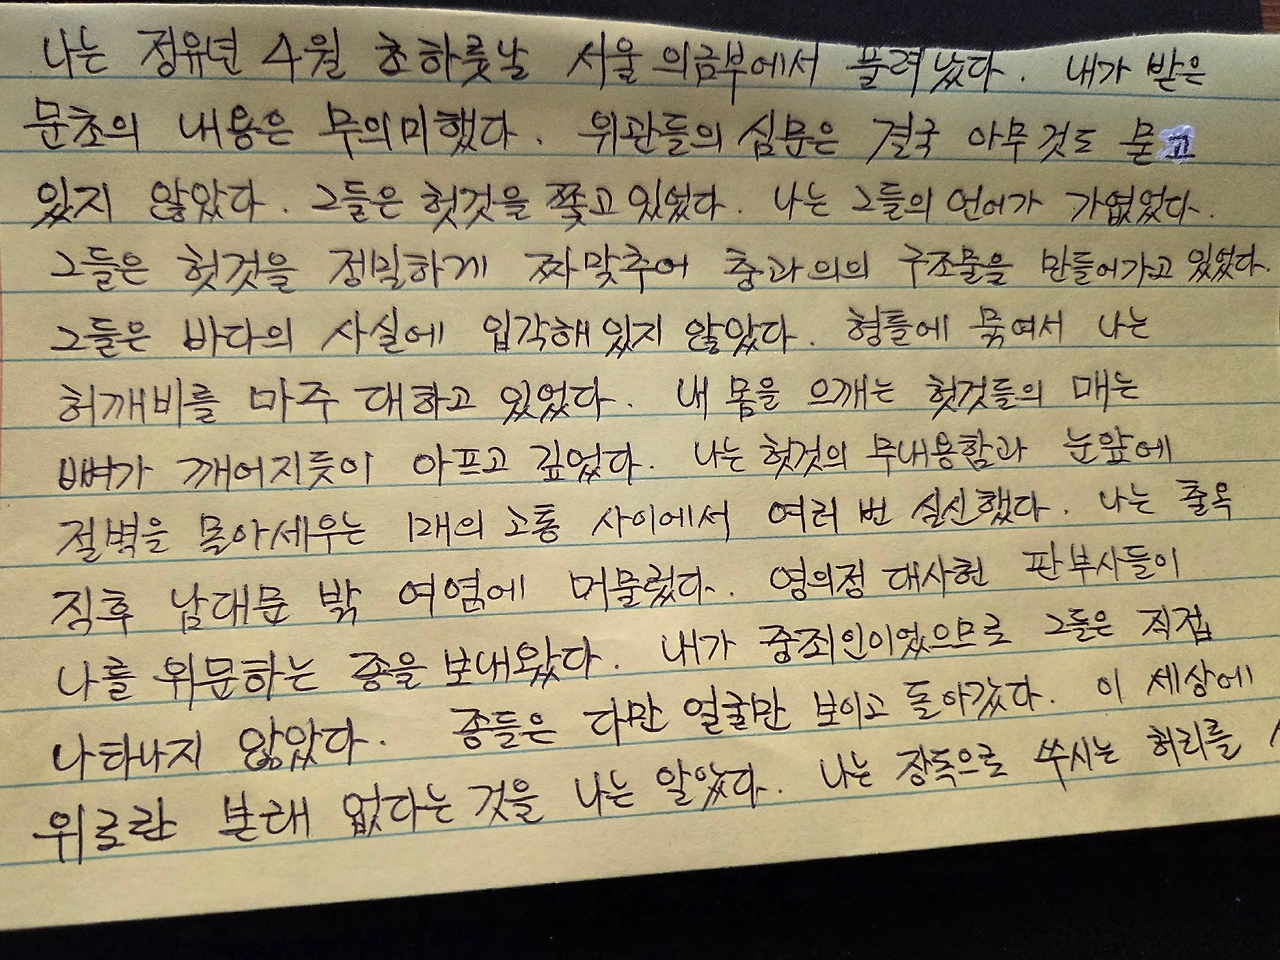 나는 정유년 4월 초하룻날 서울 의금부에서 풀려났다. 내가 받은
문초의 내용은 무의미했다. 위관들의 심문은 결국 아무것도 묻고
있지 않았다. 그들은 헛것을 쫓고 있었다. 나는 그들의 언어가 가엾었다.
그들은 헛것을 정밀하게 짜맞추어 충과 의의 구조물을 만들어가고 있었다.
그들은 바다의 사실에 입각해 있지 않았다. 형틀에 묶여서 나는
허깨비를 마주 대하고 있었다. 내 몸을 으깨는 헛것들의 매는
뼈가 깨어지듯이 아프고 깊었다. 나는 헛것의 무내용함과 눈앞에
절벽을 몰아세우는 매의 고통 사이에서 여러 번 실신했다. 나는 출옥
직후 남대문 밖 여염에 머물렀다. 영의정 대사헌 판부사들이
나를 위문하는 종을 보내왔다. 내가 중죄인이었으므로 그들은 직접
나타나지 않았다. 종들은 다만 얼굴만 보이고 돌아갔다. 이 세상에
위로란 본래 없다는 것을 나는 알았다. 나는 장독으로 쑤시는 허리를